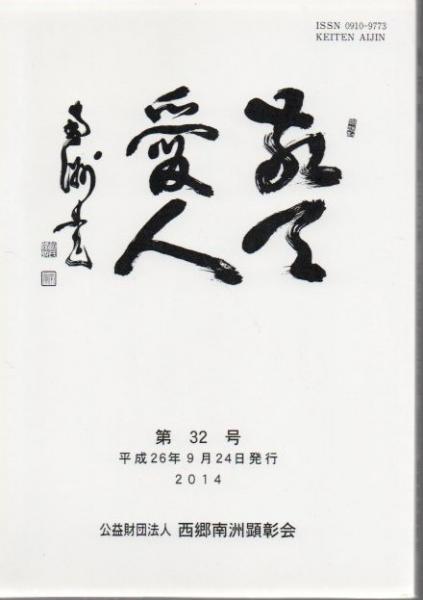 ISSN 0910-9773
KEITEN AIJIN
敬天
愛人
南洲書
第 32 号
平成26年9月24日発行
2014
公益財団法人 西郷南洲顕彰会